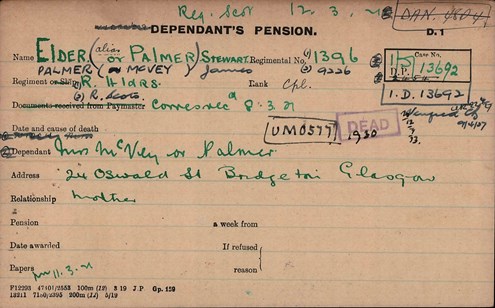 Reg. Scot 12. 3. 21
DAN. 4804
DEPENDANT'S PENSION.
D. 1
Name ELDER (alias or PALMER) STEWART. Regimental No. (1) 1396
PALMER (or McVEY) James (2) 9226
Case No.
D.P. 13692
Regiment or Ship (1) R. Hldrs. Rank Cpl.
(2) R. Scots
I.D. 13692
Documents received from Paymaster 8.3.21
Date and cause of death
UM0577
DEAD
1930
Dependant Mrs McVey or Palmer
Address 24 Oswald St Bridgeton Glasgow
Relationship Mother
Pension a week from
Date awarded If refused
reason
Papers 11.3.21
F12293 47101/2553 100m (12) 3 19 J.P Gp. 159
13211 200m (12) 5/19